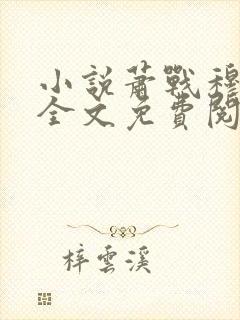 小說蕭戰穆
全文免費閱
梓雲溪